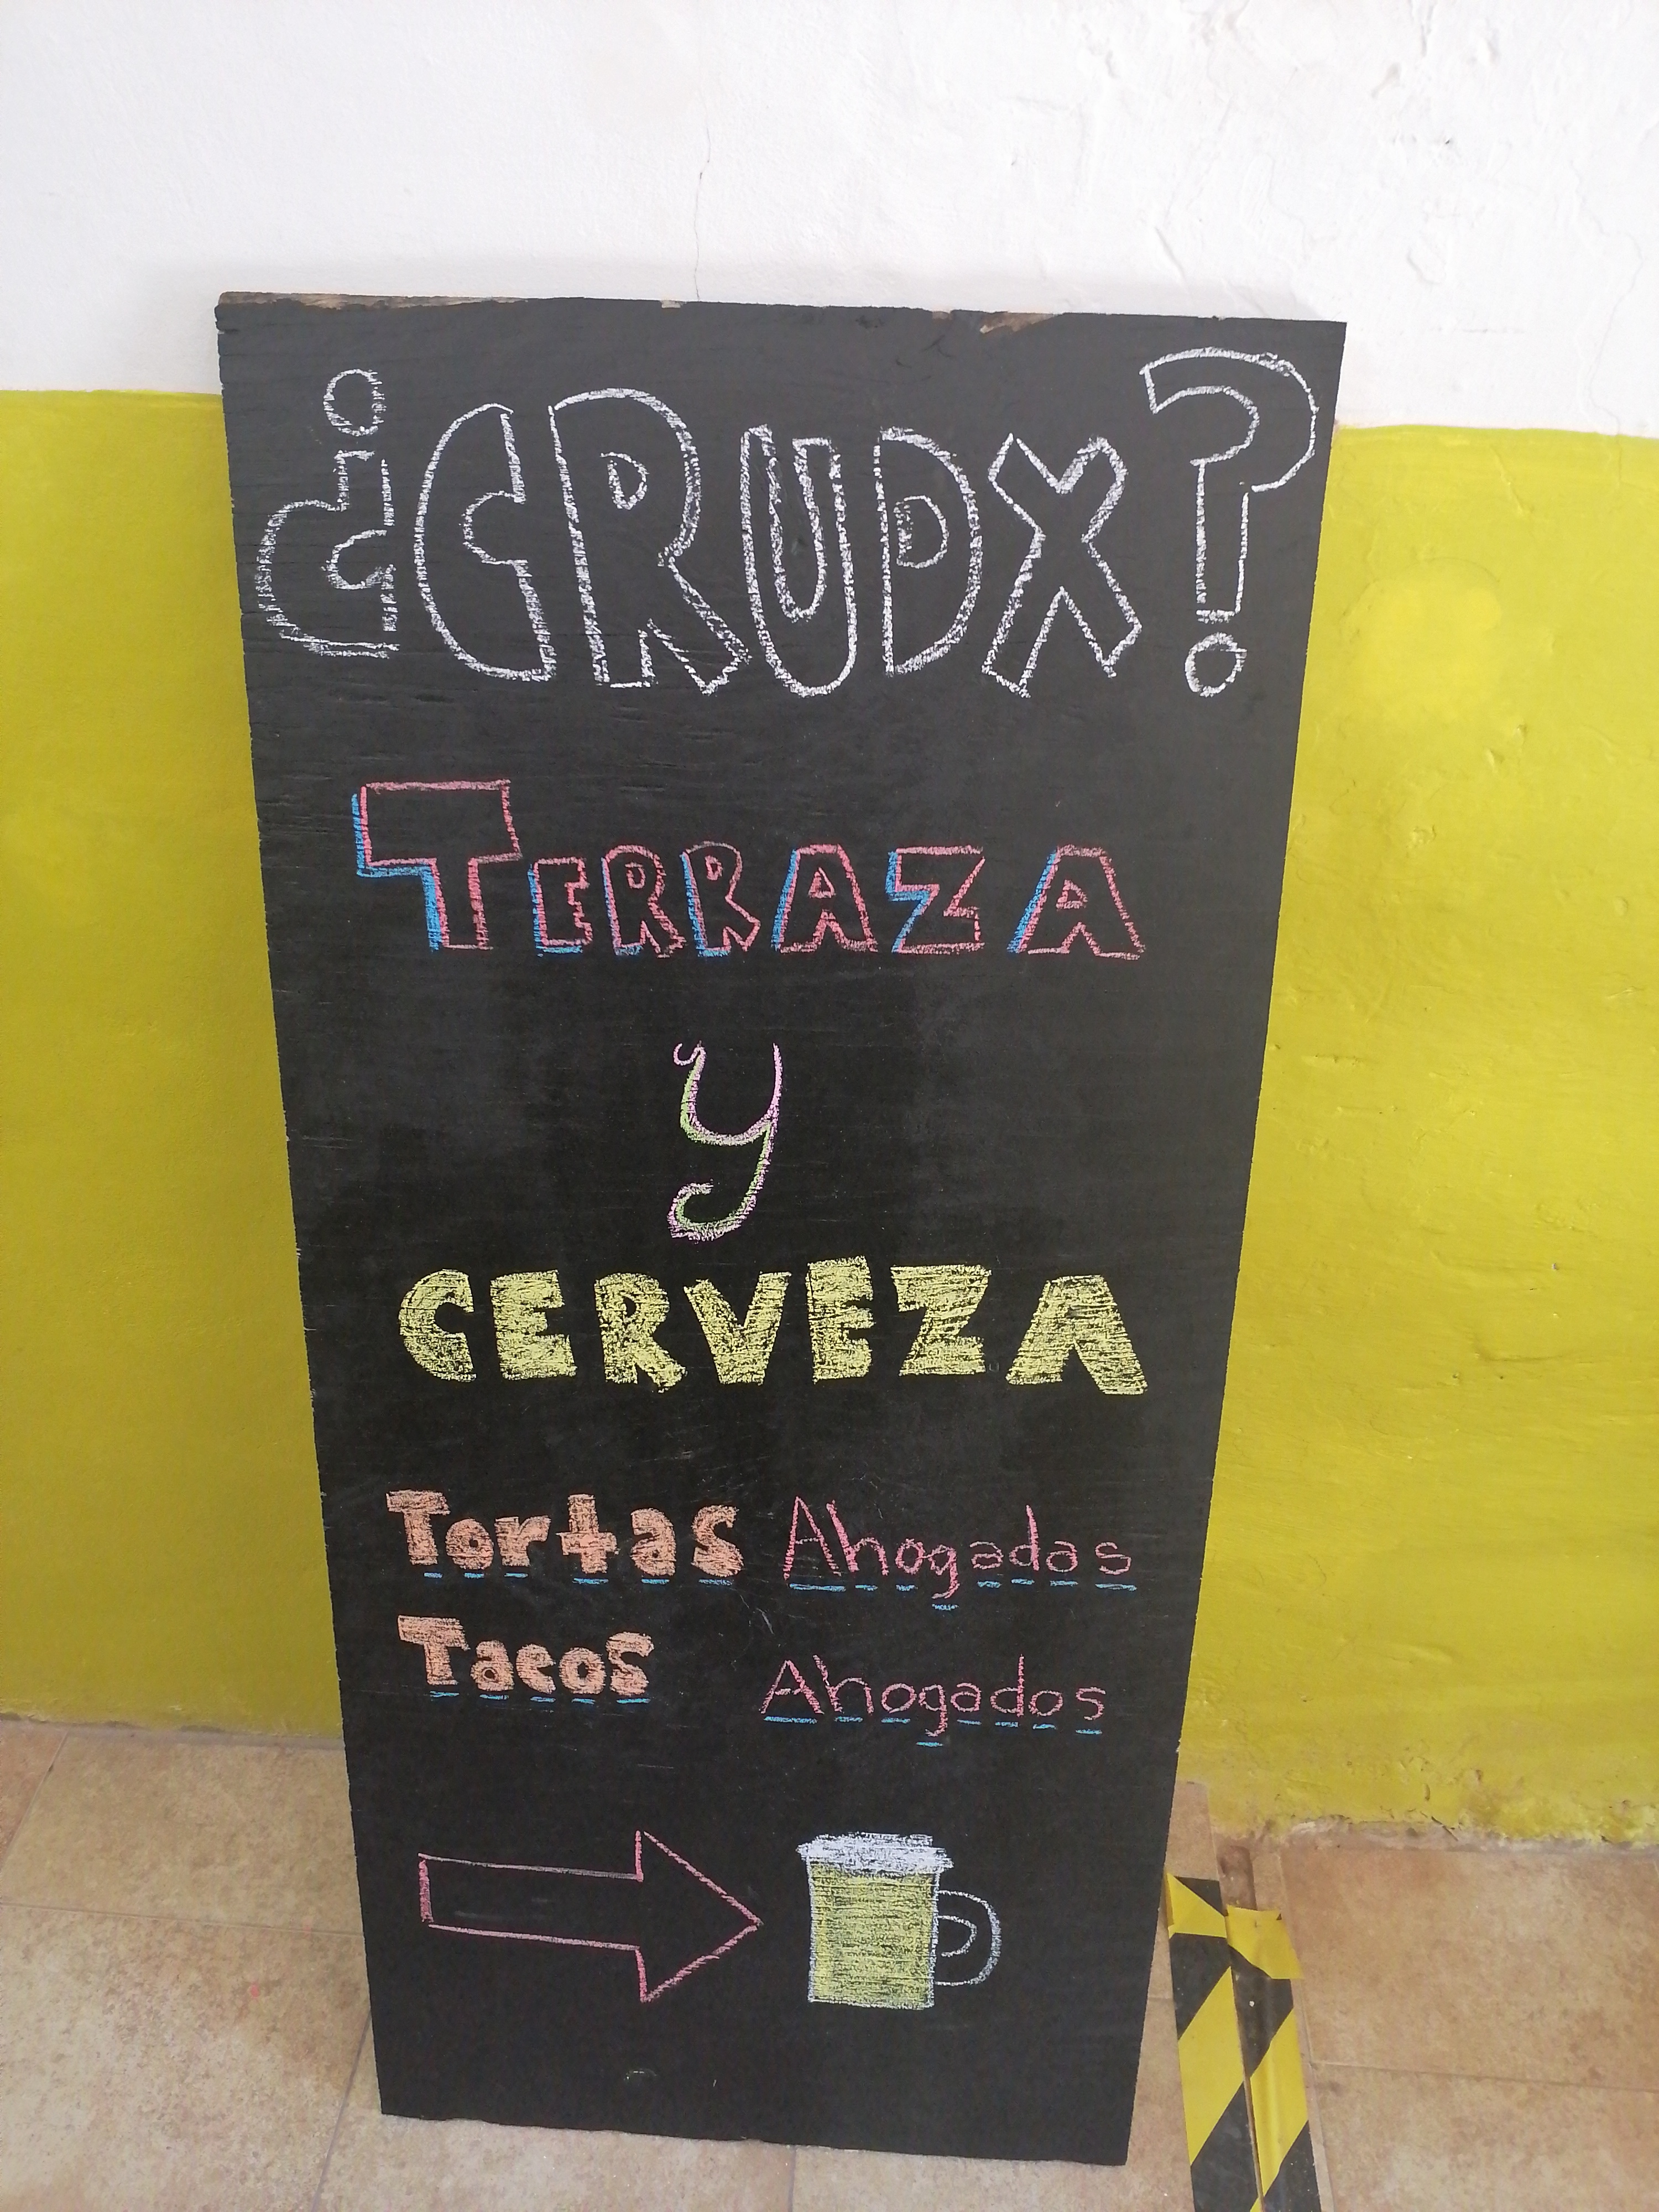 ¿CRUDX?
TERRAZA
y
CERVEZA
Tortas Ahogadas
Tacos Ahogados